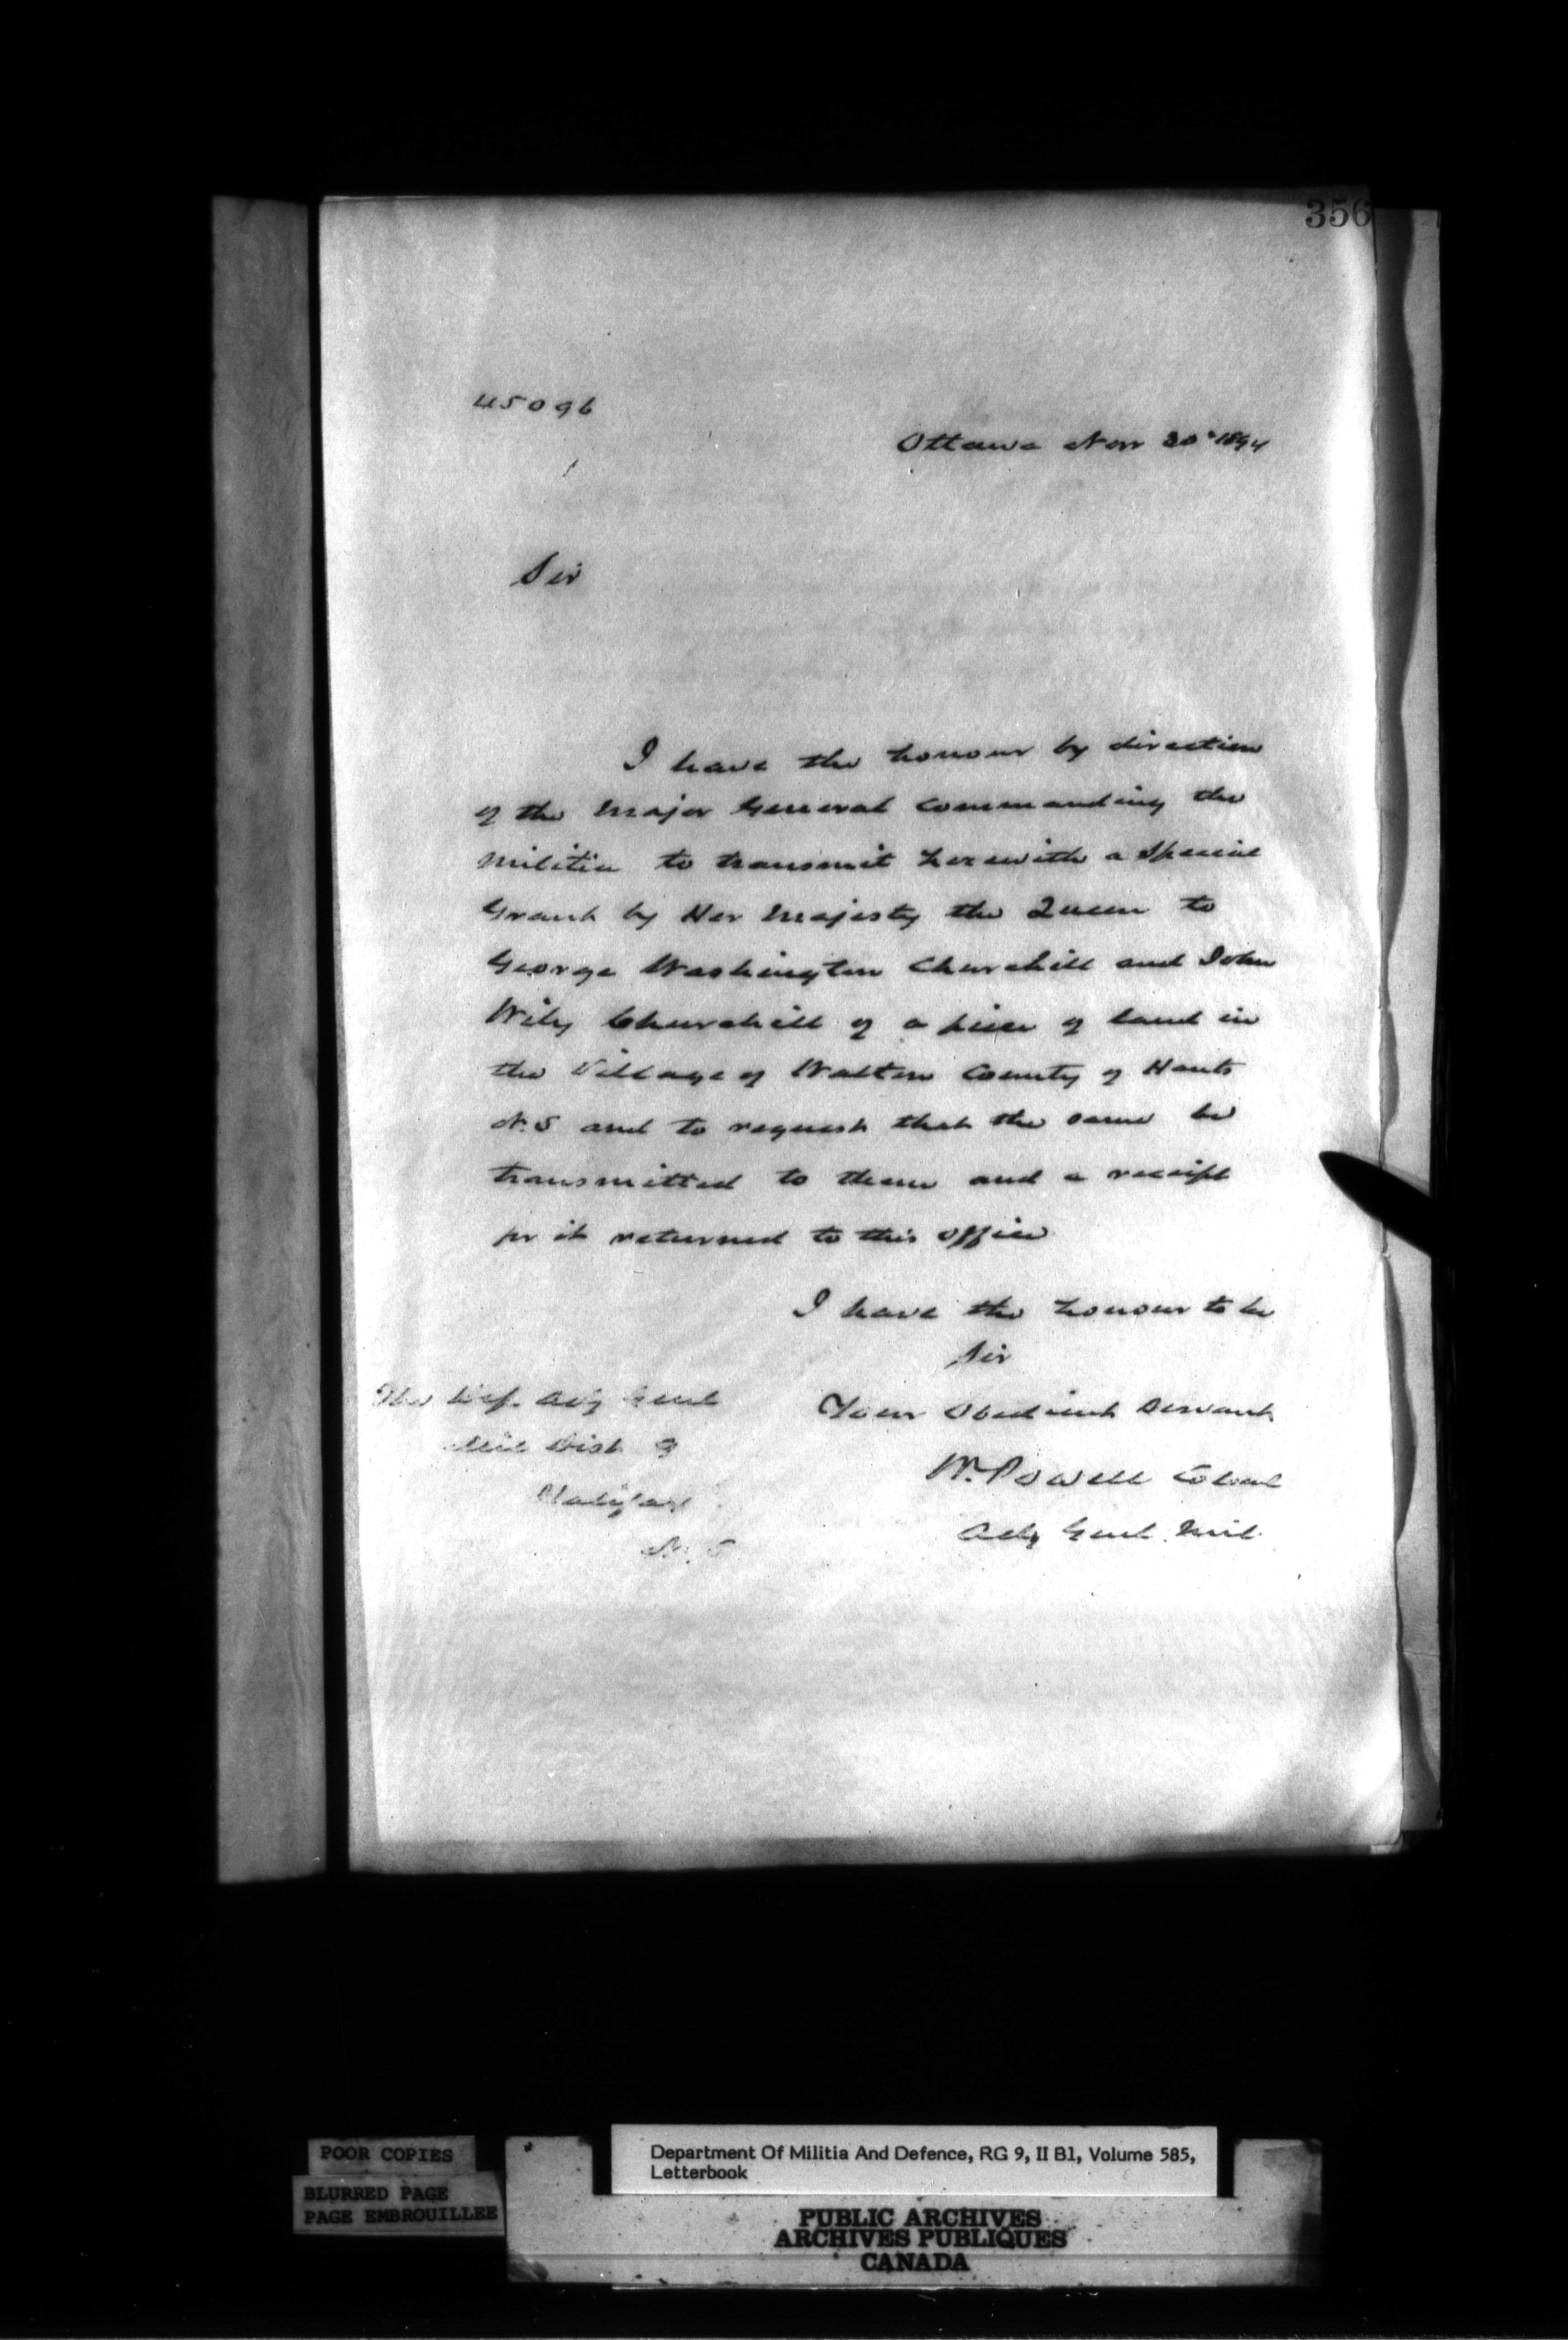 356
45096
Ottawa Nov 30th 1894
Sir
I have the honour by direction
of the Major General Commanding the
Militia to transmit herewith a Special
Grant by Her Majesty the Queen to
George Washington Churchill and John
Wily Churchill of a piece of land in
the Village of Walton County of Hants
N.S and to request that the same be
transmitted to them and a receipt
for it returned to this office
I have the honour to be
Sir
Your Obedient Servant
W. Powell Colonel
Adjt Genl. Mil.
The Dep. Adj Genl
Mil Dist 9
Halifax
N. S
POOR COPIES
BLURRED PAGE
PAGE EMBROUILLEE
Department Of Militia And Defence, RG 9, II B1, Volume 585,
Letterbook
PUBLIC ARCHIVES
ARCHIVES PUBLIQUES
CANADA